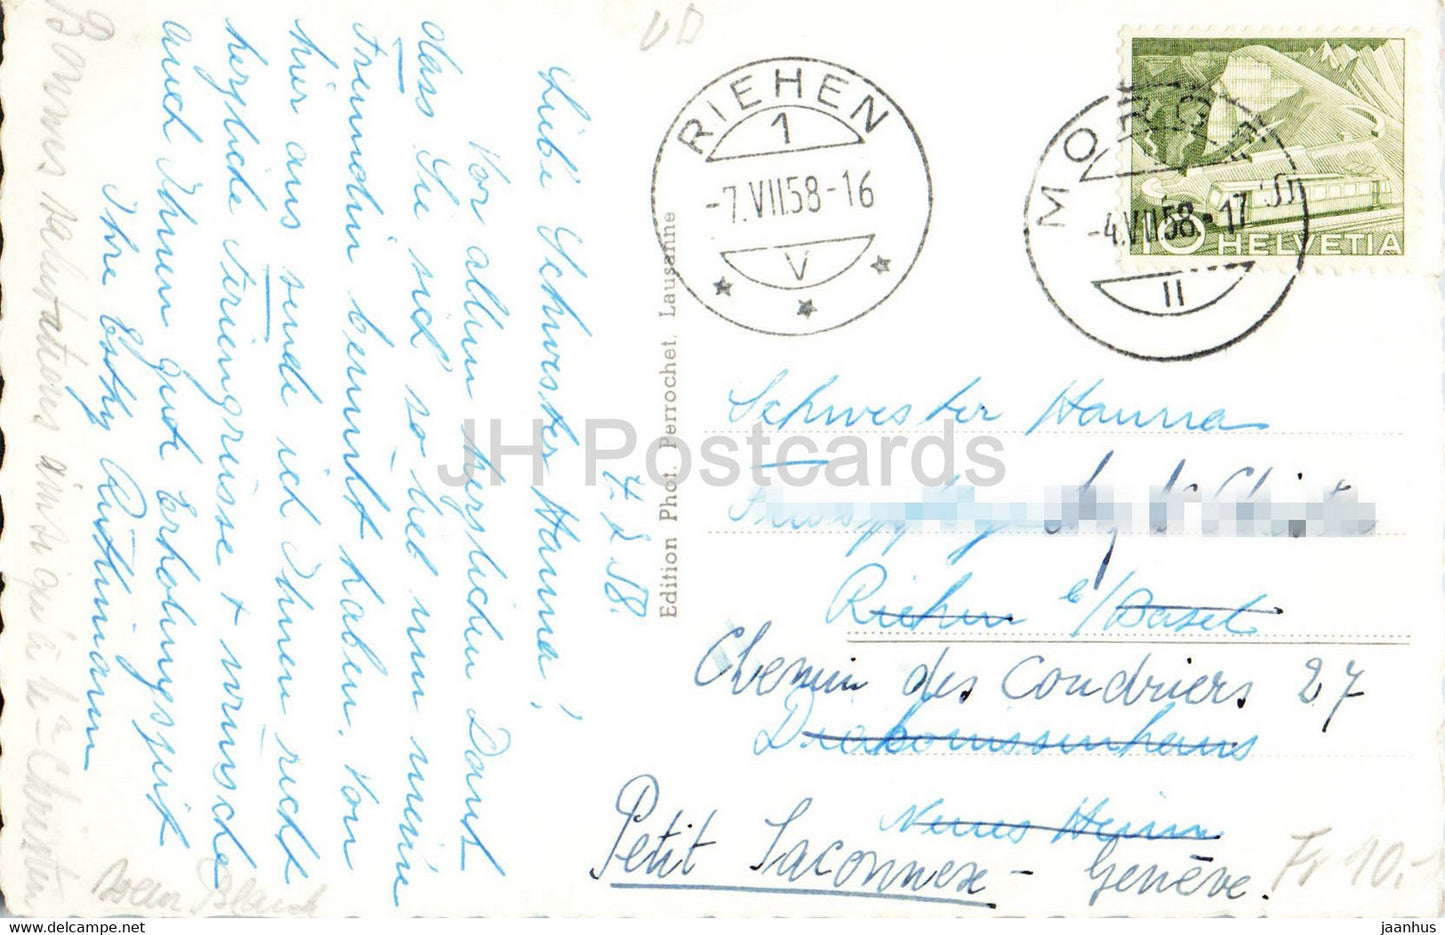 4.7.58.
Liebe Schwester Hanna!
Vor allem herzlichen Dank
dass Sie sich so viel um meine
Freundin bemüht haben. Von
hier aus sende ich Ihnen recht
herzliche Feriengrüsse + wünsche
auch Ihnen gute Erholungszeit
Ihre Esthy Rüthimann
Bonnes salutations ainsi qu'à Sr Christen
VD
RIEHEN
1
-7.VII.58-16
V
MORGES
-4.VII.58.-17
II
10 HELVETIA
Edition Phot. Perrochet, Lausanne
Schwester Hanna
Riehen b/Basel
Chemin des Coudriers 27
Diakonissenhaus
Neues Heim
Petit Saconnex - Genève.
Fr 10.-
JH Postcards
jaanhus
delcampe.net